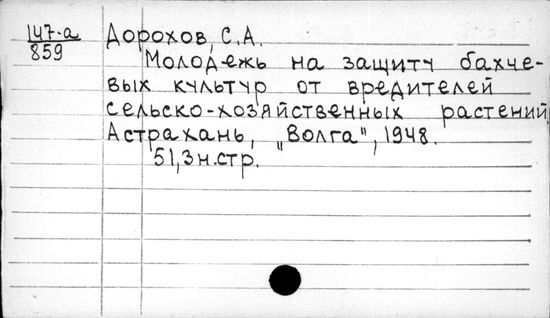 147-а
859
Дорохов, С.А.
Молодежь на защиту бахче-
вых культур от вредителей
сельско-хозяйственных растений
Астрахань, „Волга", 1948.
51,3н.стр.